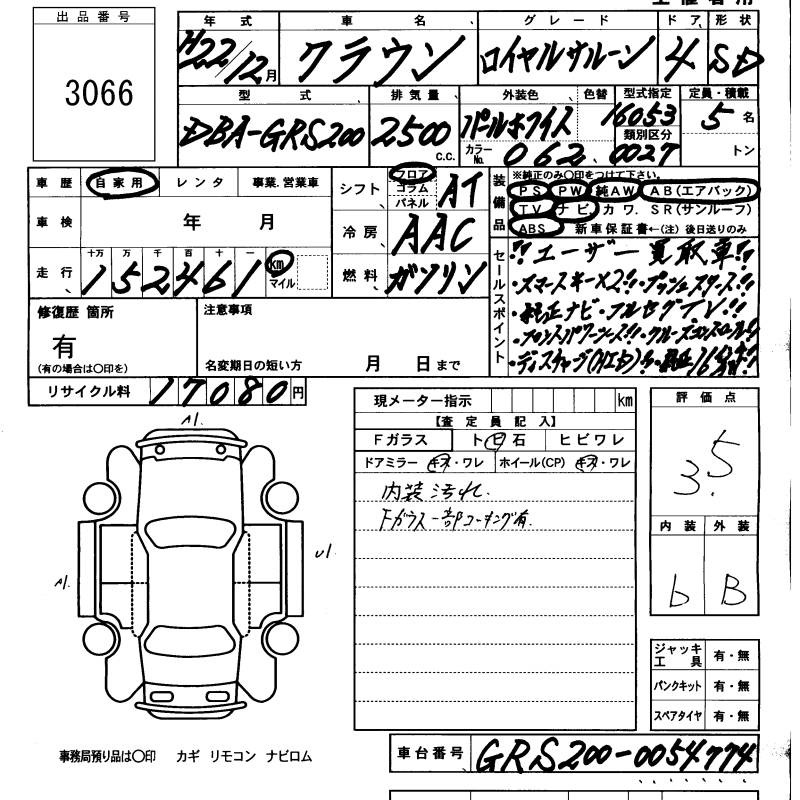 出品番号
3066
年式 車名 グレード ドア 形状
H22/12月 クラウン ロイヤルサルーン 4 SD
型式 排気量 外装色 色替 型式指定 定員・積載
DBA-GRS200 2500 C.C. パールホワイト 16053 5名
カラーNo. 062 類別区分 0027 トン
車歴 自家用 レンタ 事業.営業車
シフト フロア コラム パネル AT
装備品 ※純正のみ〇印をつけて下さい。
PS PW 純AW AB(エアバック)
TV ナビ カワ. SR(サンルーフ)
ABS 新車保証書←(注) 後日送りのみ
車検 年 月
冷房 AAC
走行 十万 万 千 百 十 一
152461 km マイル
燃料 ガソリン
セールスポイント
!!ユーザー買取車!!
・スマートキー×2!!・プッシュスタート!!
・純正ナビ・フルセグTV!!
・フロントパワーシート!!・クルーズコントロール!!
・ディスチャージ(HID)!!・純正16AW!!
修復歴 箇所
有
(有の場合は〇印を)
注意事項
名変期日の短い方 月 日まで
リサイクル料 17080円
現メーター指示 km
【査定員記入】
Fガラス ト ヒ 石 ヒビワレ
ドアミラー キズ・ワレ ホイール(CP) キズ・ワレ
内装汚れ.
Fガラス一部コーチング有.
評価点
3.5
内装 外装
b B
A1.
A1.
U1.
ジャッキ工具 有・無
パンクキット 有・無
スペアタイヤ 有・無
事務局預り品は〇印 カギ リモコン ナビロム
車台番号 GRS200-0054774